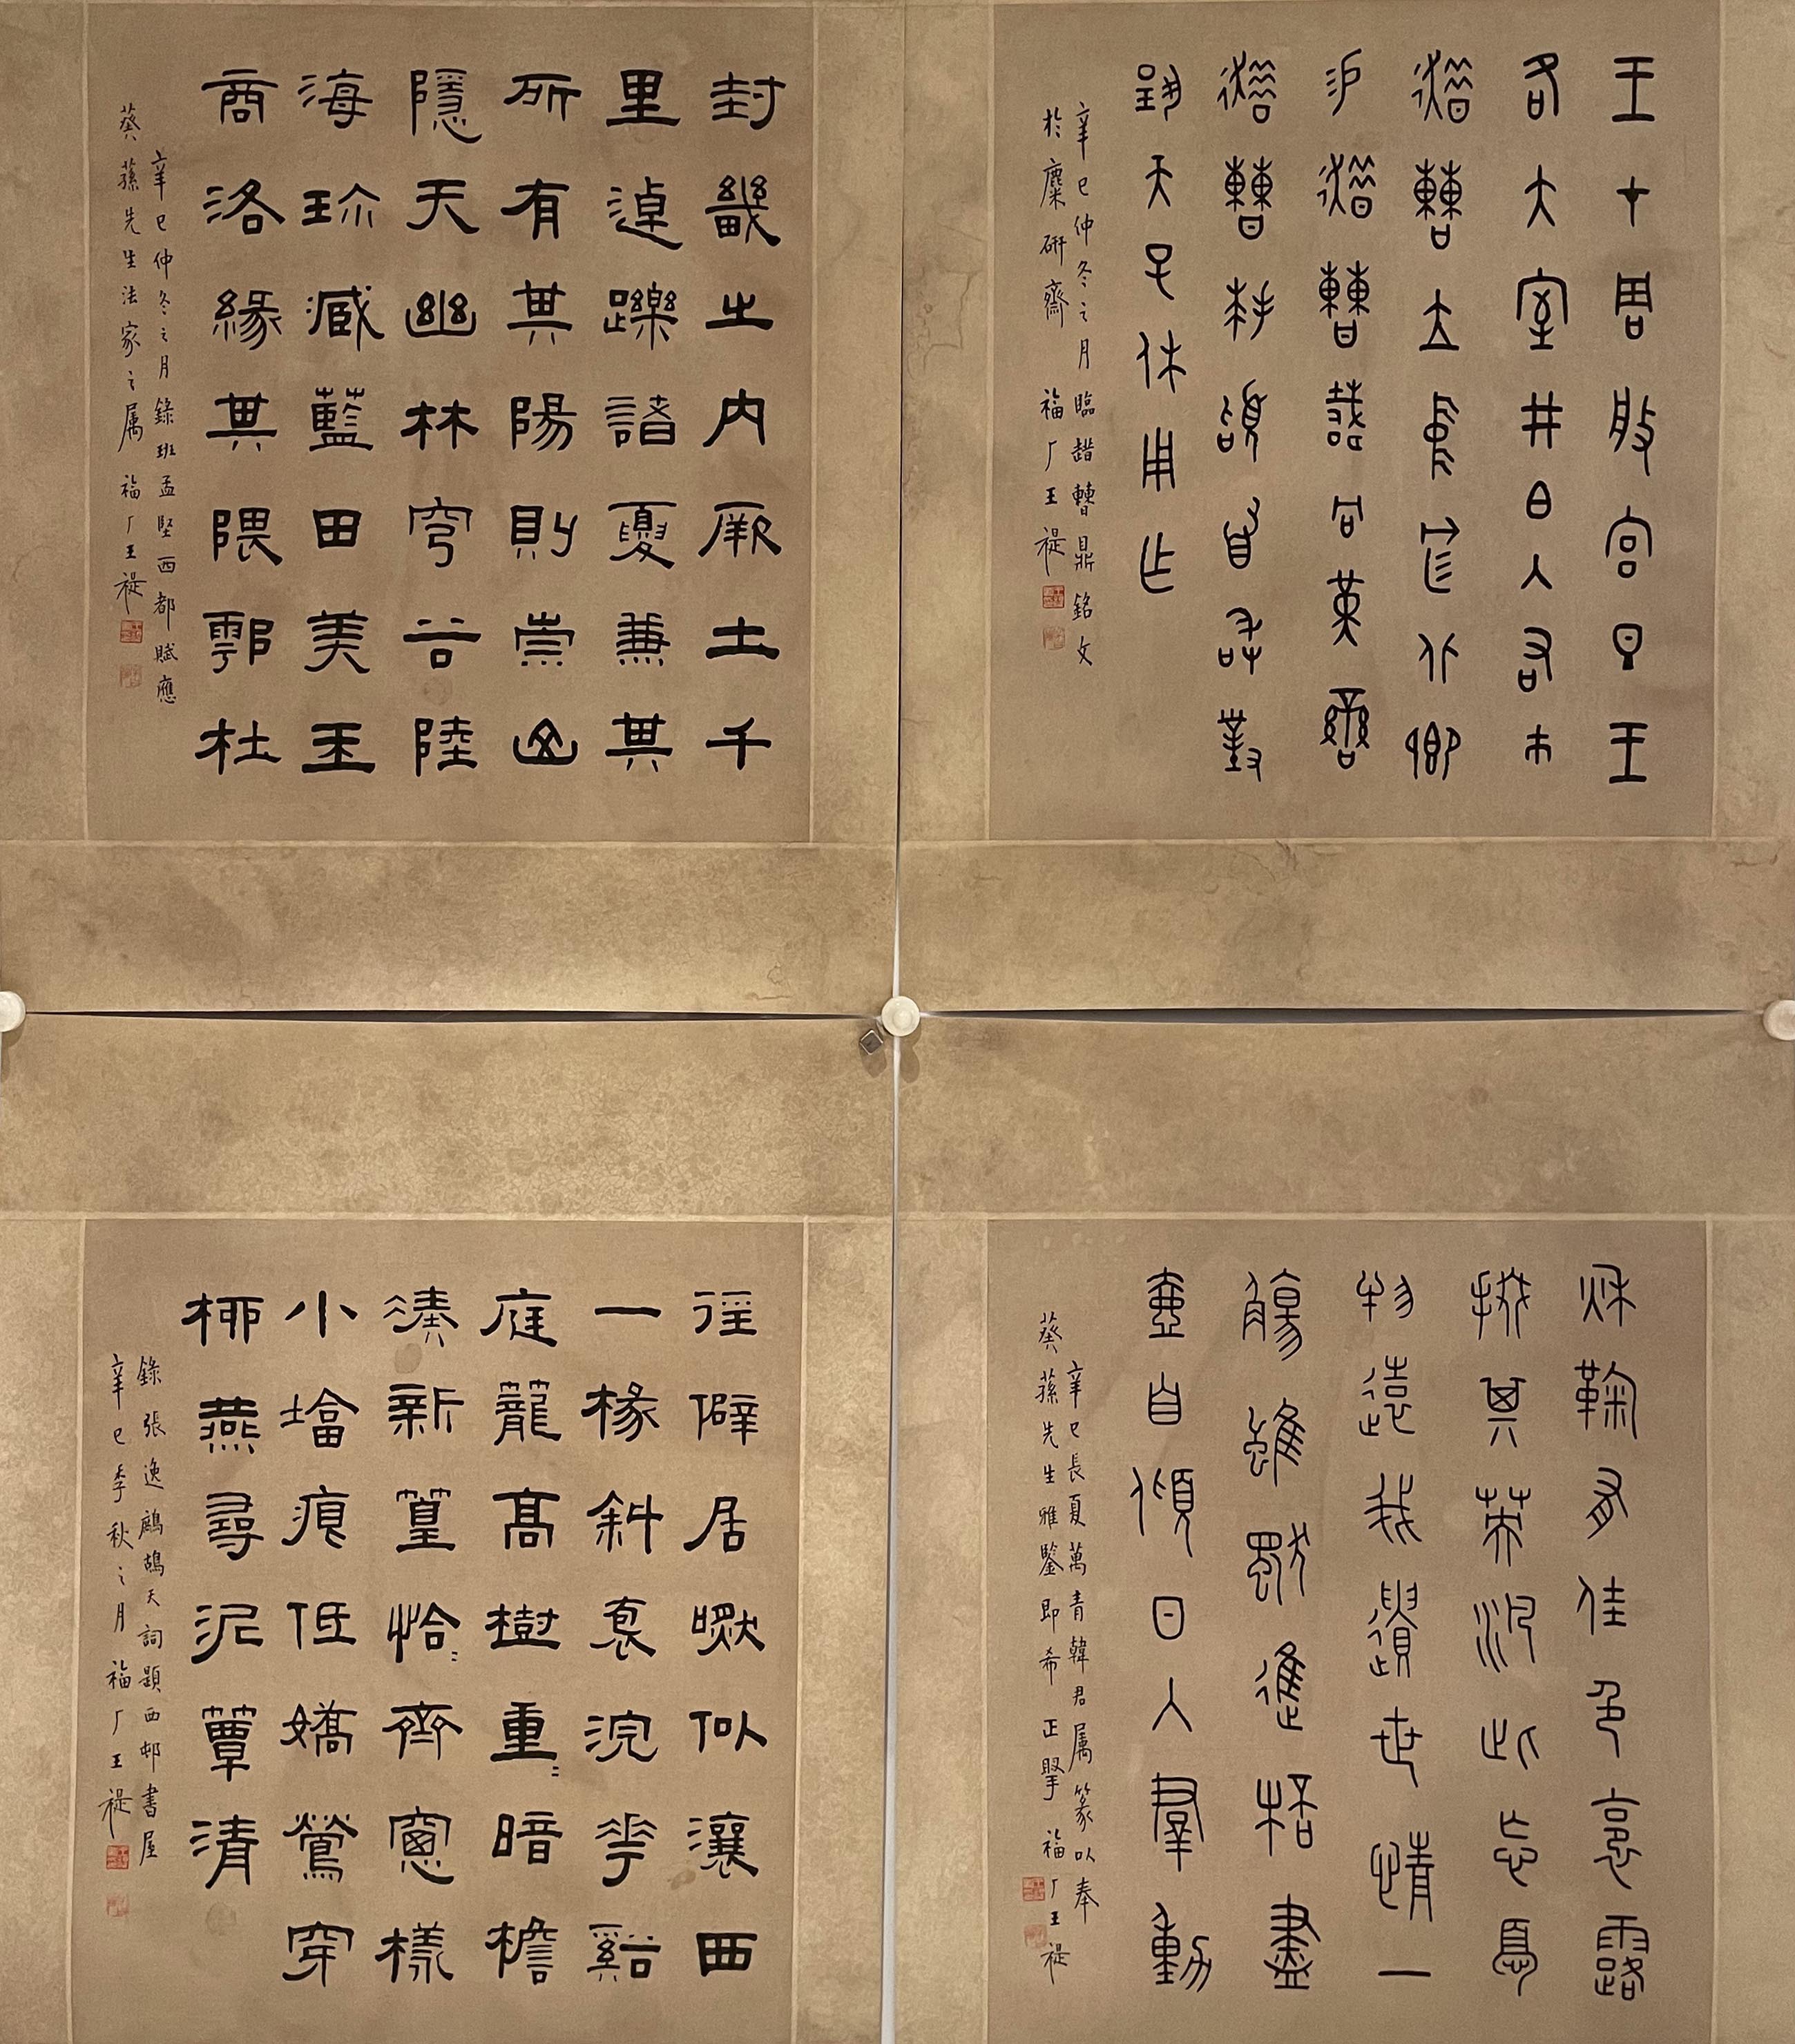 王才周般宮旦王
各大室井白入右市
趞曹立中廷北卿
易趞曹載冋黃䜌
趞曹拜䭫首敢對
揚天子休用乍
辛巳仲冬之月臨趞曹鼎銘文
於麋研齋 福厂王禔
封畿之内厥土千
里逴躒諸夏兼其
所有其陽則崇山
隱天幽林穹谷陸
海珍臧藍田美玉
商洛緣其隈鄠杜
辛巳仲冬之月錄班孟堅西都賦應
葵蓀先生法家之属 福厂王禔
秋鞠有佳色裛露
掇其英汎此忘憂
物遠我遺世情一
觴雖獨進桮盡
壺自傾日入羣動
辛巳長夏萬青韓君属篆以奉
葵蓀先生雅鑒即希正擘 福厂王禔
徑僻居似瀼西
一椽斜袤浣花谿
庭蘢高樹重〻暗檐
湊新篁恰〻齊窗樣
小墖痕低嬌鶯穿
柳燕尋泥蕈清
錄張逸鷓鴣天詞題西邨書屋
辛巳季秋之月福厂王禔